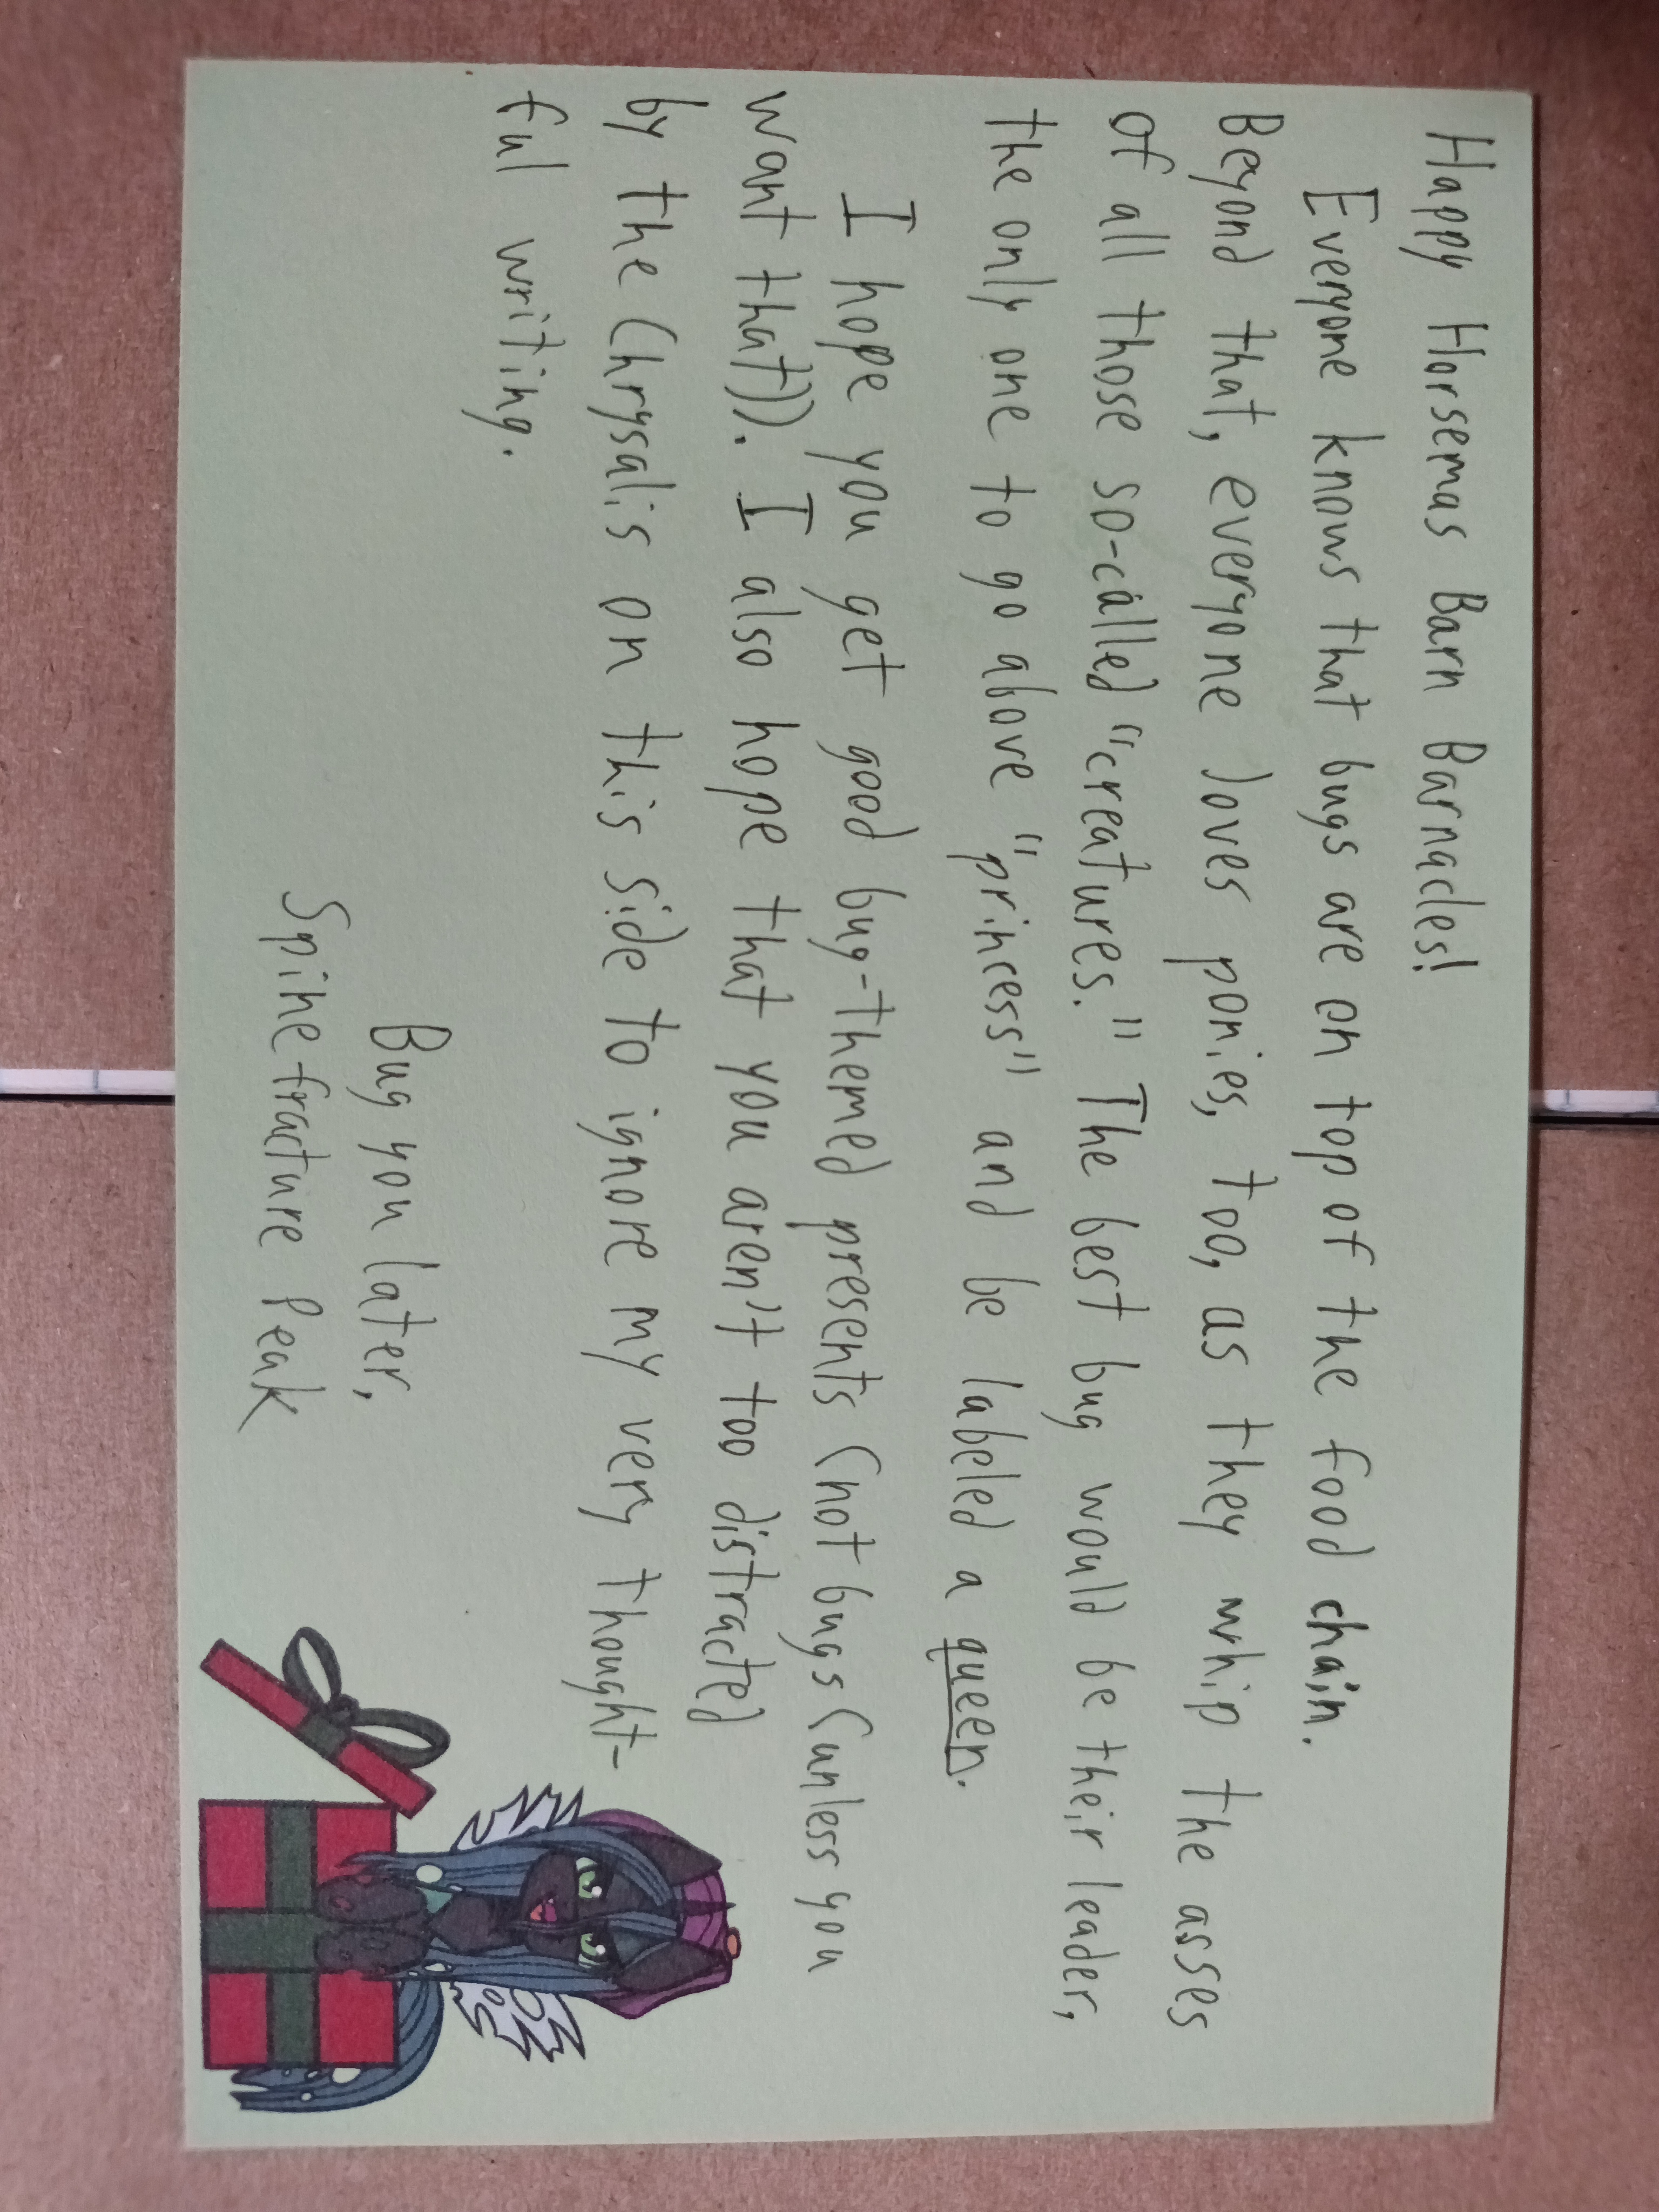 Happy Horsemas Barn Barnacles!
Everyone knows that bugs are on top of the food chain.
Beyond that, everyone loves ponies, too, as they whip the asses
of all those so-called "creatures." The best bug would be their leader,
the only one to go above "princess" and be labeled a queen.
I hope you get good bug-themed presents (not bugs (unless you
want that)). I also hope that you aren't too distracted
by the Chrysalis on this side to ignore my very thought-
ful writing.
Bug you later,
Spinefracture Peak